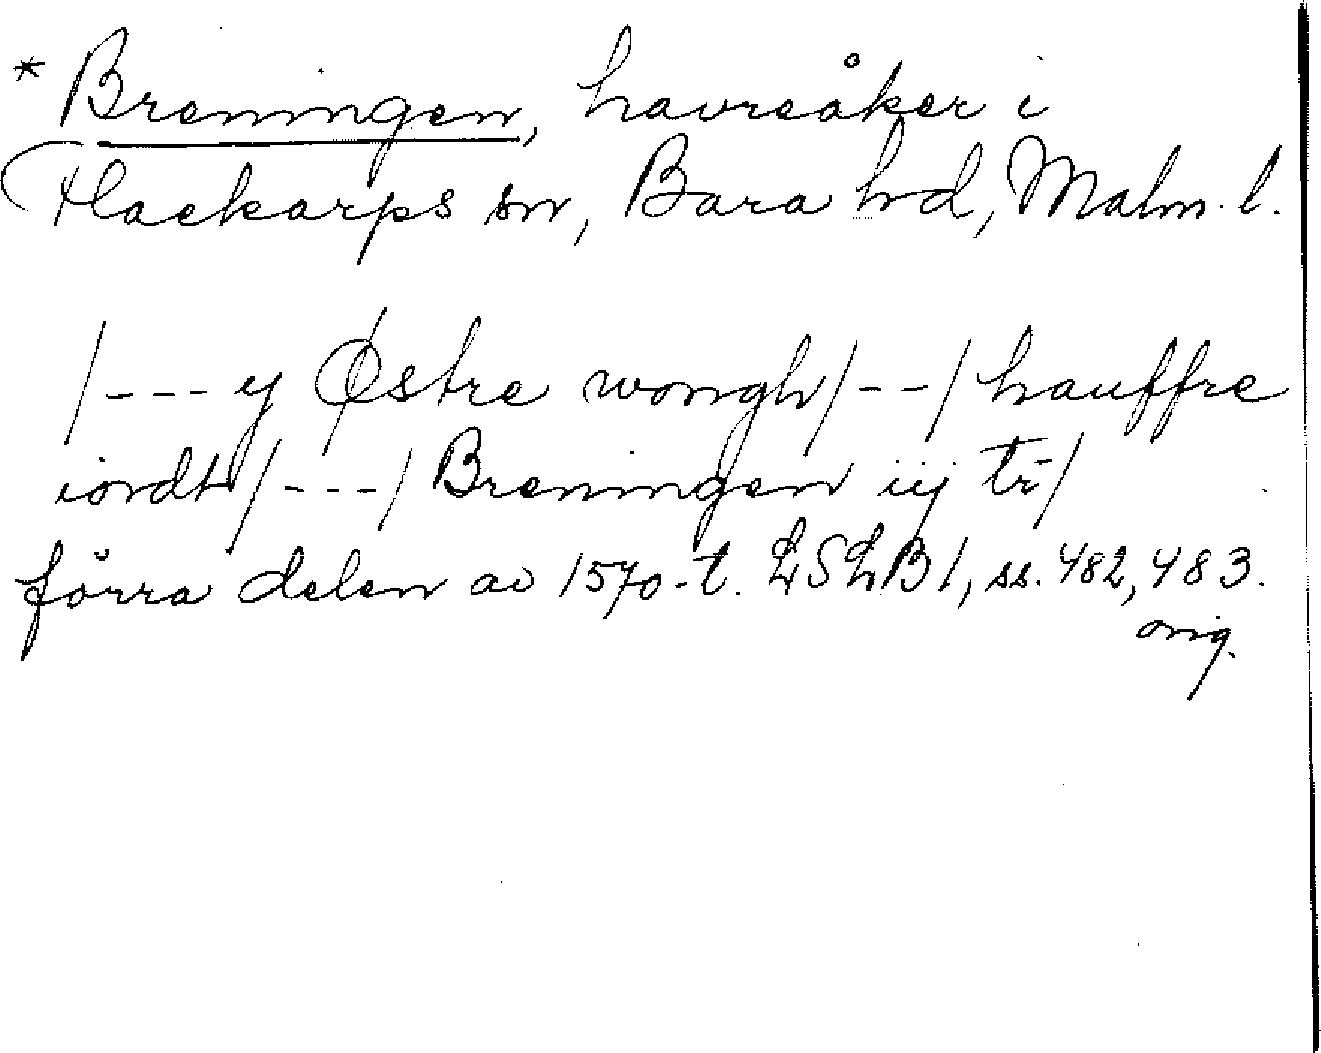 * Breningen, havreåker i
Flackarps sn, Bara hd, Malm. l.
/--- y Østre wongh/--/hauffre
iordt/---/Breningen iij tr̄/
förra delen av 1570-t. LSLB1, ss. 482, 483.
orig.